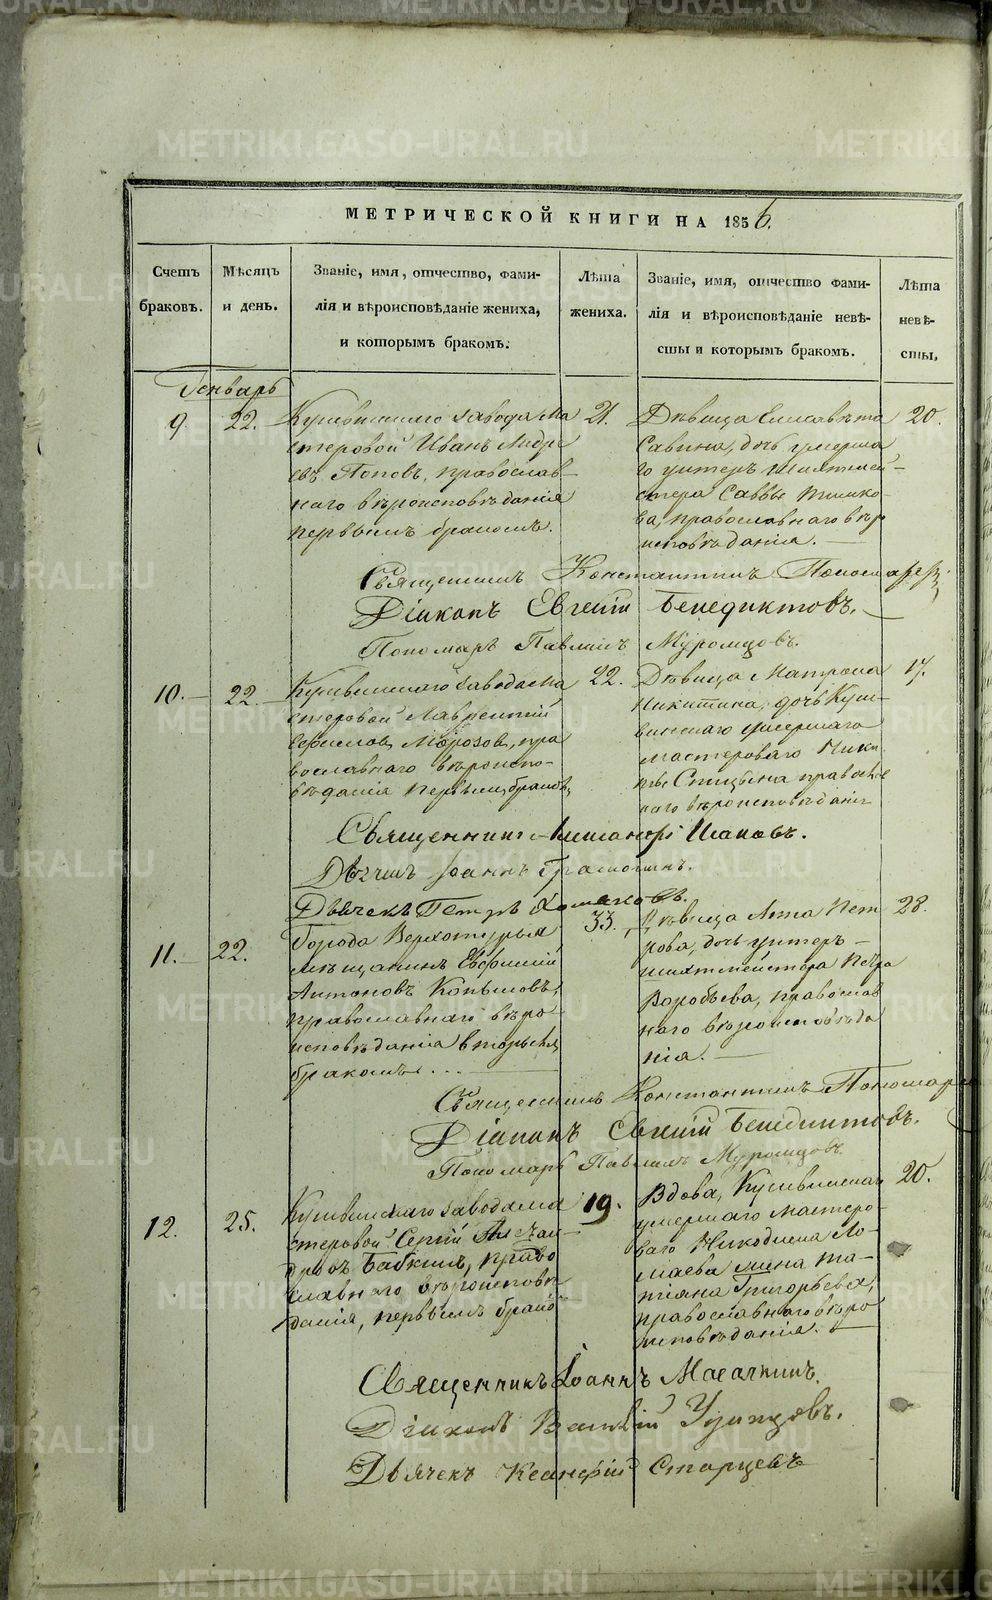 МЕТРИЧЕСКОЙ КНИГИ НА 1856.
Счетъ браковъ.
Мѣсяцъ и день.
Званіе, имя, отчество, фами-
лія и вѣроисповѣданіе жениха,
и которымъ бракомъ.
Лѣта жениха.
Званіе, имя, отчество фами-
лія и вѣроисповѣданіе невѣ-
сты и которымъ бракомъ.
Лѣта невѣ-
сты.
Генварь
9
22.
Кушвинскаго завода ма
стеровой Иванъ Андре
евъ Поповъ, православ
наго вѣроисповѣданія
первымъ бракомъ.
21.
Дѣвица Елисавета
Савина, дочь умерша
го унтеръ шихтмей-
стера Саввы
ва, православнаго вѣро
исповѣданія.
20.
Священникъ Константинъ Пономаревъ
Діаконъ Евгеній Бенедиктовъ.
Пономарь Павлинъ Муромцовъ.
10.
22.
Кушвинскаго завода ма
стеровой Лаврентій
Морозов, пра
вославнаго вѣроиспо-
вѣданія первымъ браком,
22.
Дѣвица Матрона
Никитина, дочь Куш-
винскаго умершаго
мастероваго Ники
ты Спицына правосла
наго вѣроисповѣданія
17.
Священникъ Александръ Исаковъ.
Дьячекъ Іоаннъ
Дьячекъ Петръ Хомяковъ.
11.
22.
Города Верхотурья
мѣщанинъ Евфимій
Антоновъ Копыловъ,
православнаго вѣро
исповѣданія вторымъ
бракомъ...
33.
Дѣвица Анна Пет
рова, дочь унтеръ-
шихтмейстера Петра
Воробьева, православ
наго вѣроисповѣда
нія.
28.
Священникъ Константинъ Пономаре
Діаконъ Евгеній Бенедиктовъ.
Пономарь Павлинъ Муромцовъ
12.
25.
Кушвинскаго завода ма
стеровой Сергій Алексан-
дровъ Бабкинъ, право
славнаго вѣроисповѣ
данія, первымъ брако
19.
Вдова, Кушвинскаго
умершаго мастеро-
ваго Никодима Ло-
маева жена Та-
тіана Григорьева,
православнаго вѣро
исповѣданія.
20.
Священникъ Іоаннъ Масалкинъ.
Діаконъ Василій Удинцовъ.
Дьячекъ Ксанфій Старцевъ
METRIKI.GASO-URAL.RU